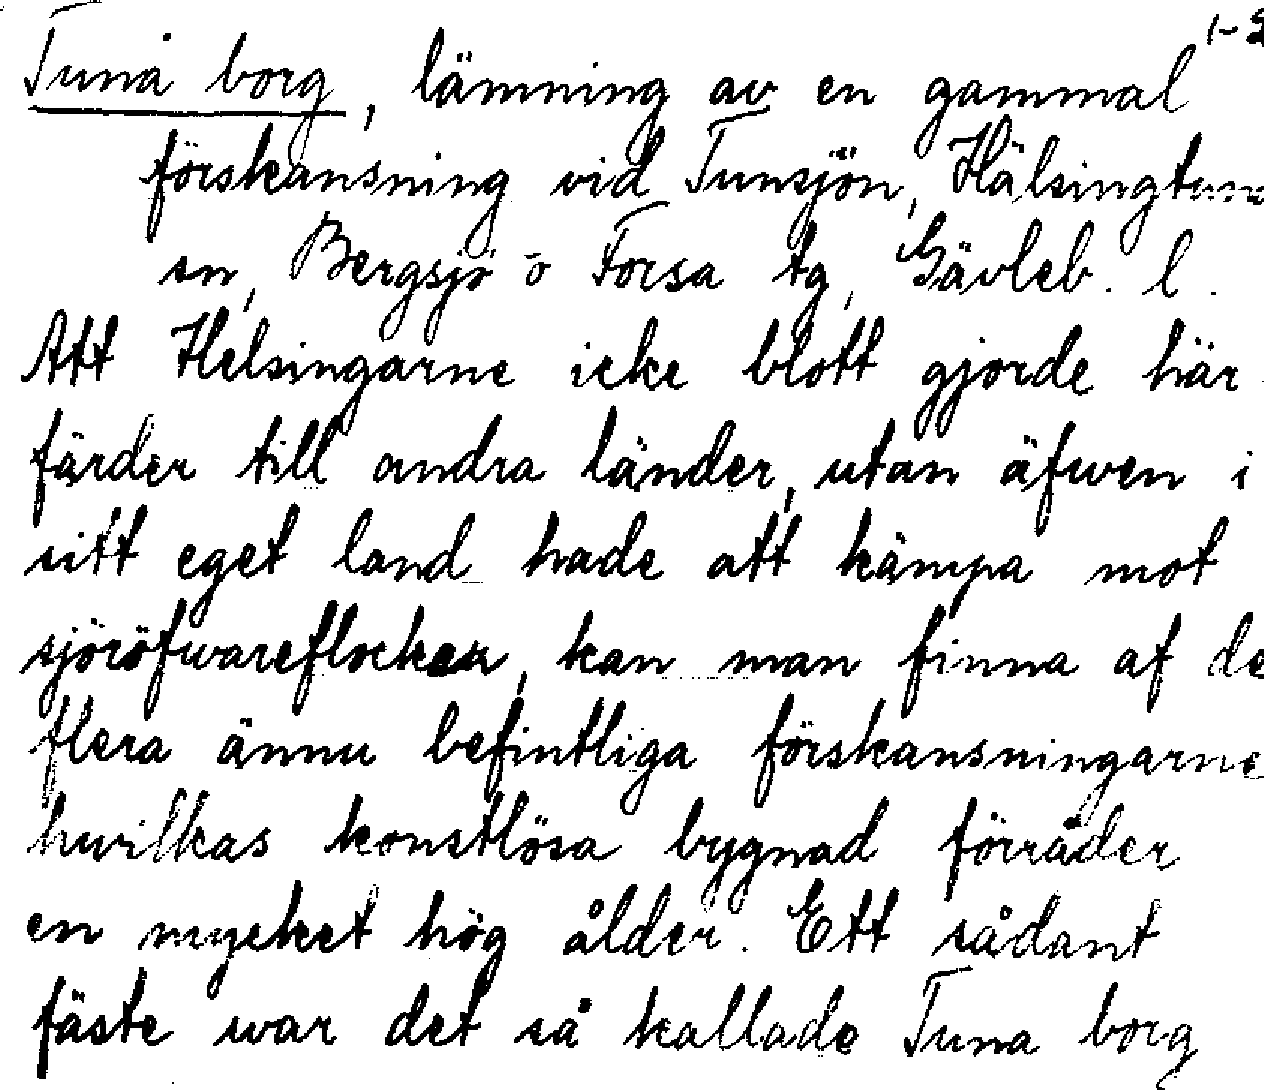 1-2
Tuna borg, lämning av en gammal
förskansning vid Tunsjön, Hälsingtuna
sn, Bergsjö o Forsa tg, Gävleb. l.
Att Helsingarne icke blott gjorde här
färder till andra länder, utan äfwen i
sitt eget land hade att kämpa mot
sjöröfwareflocker, kan man finna af de
flera ännu befintliga förskansningarne
hwilkas konstlösa bygnad förråder
en mycket hög ålder. Ett sådant
fäste war det så kallade Tuna borg